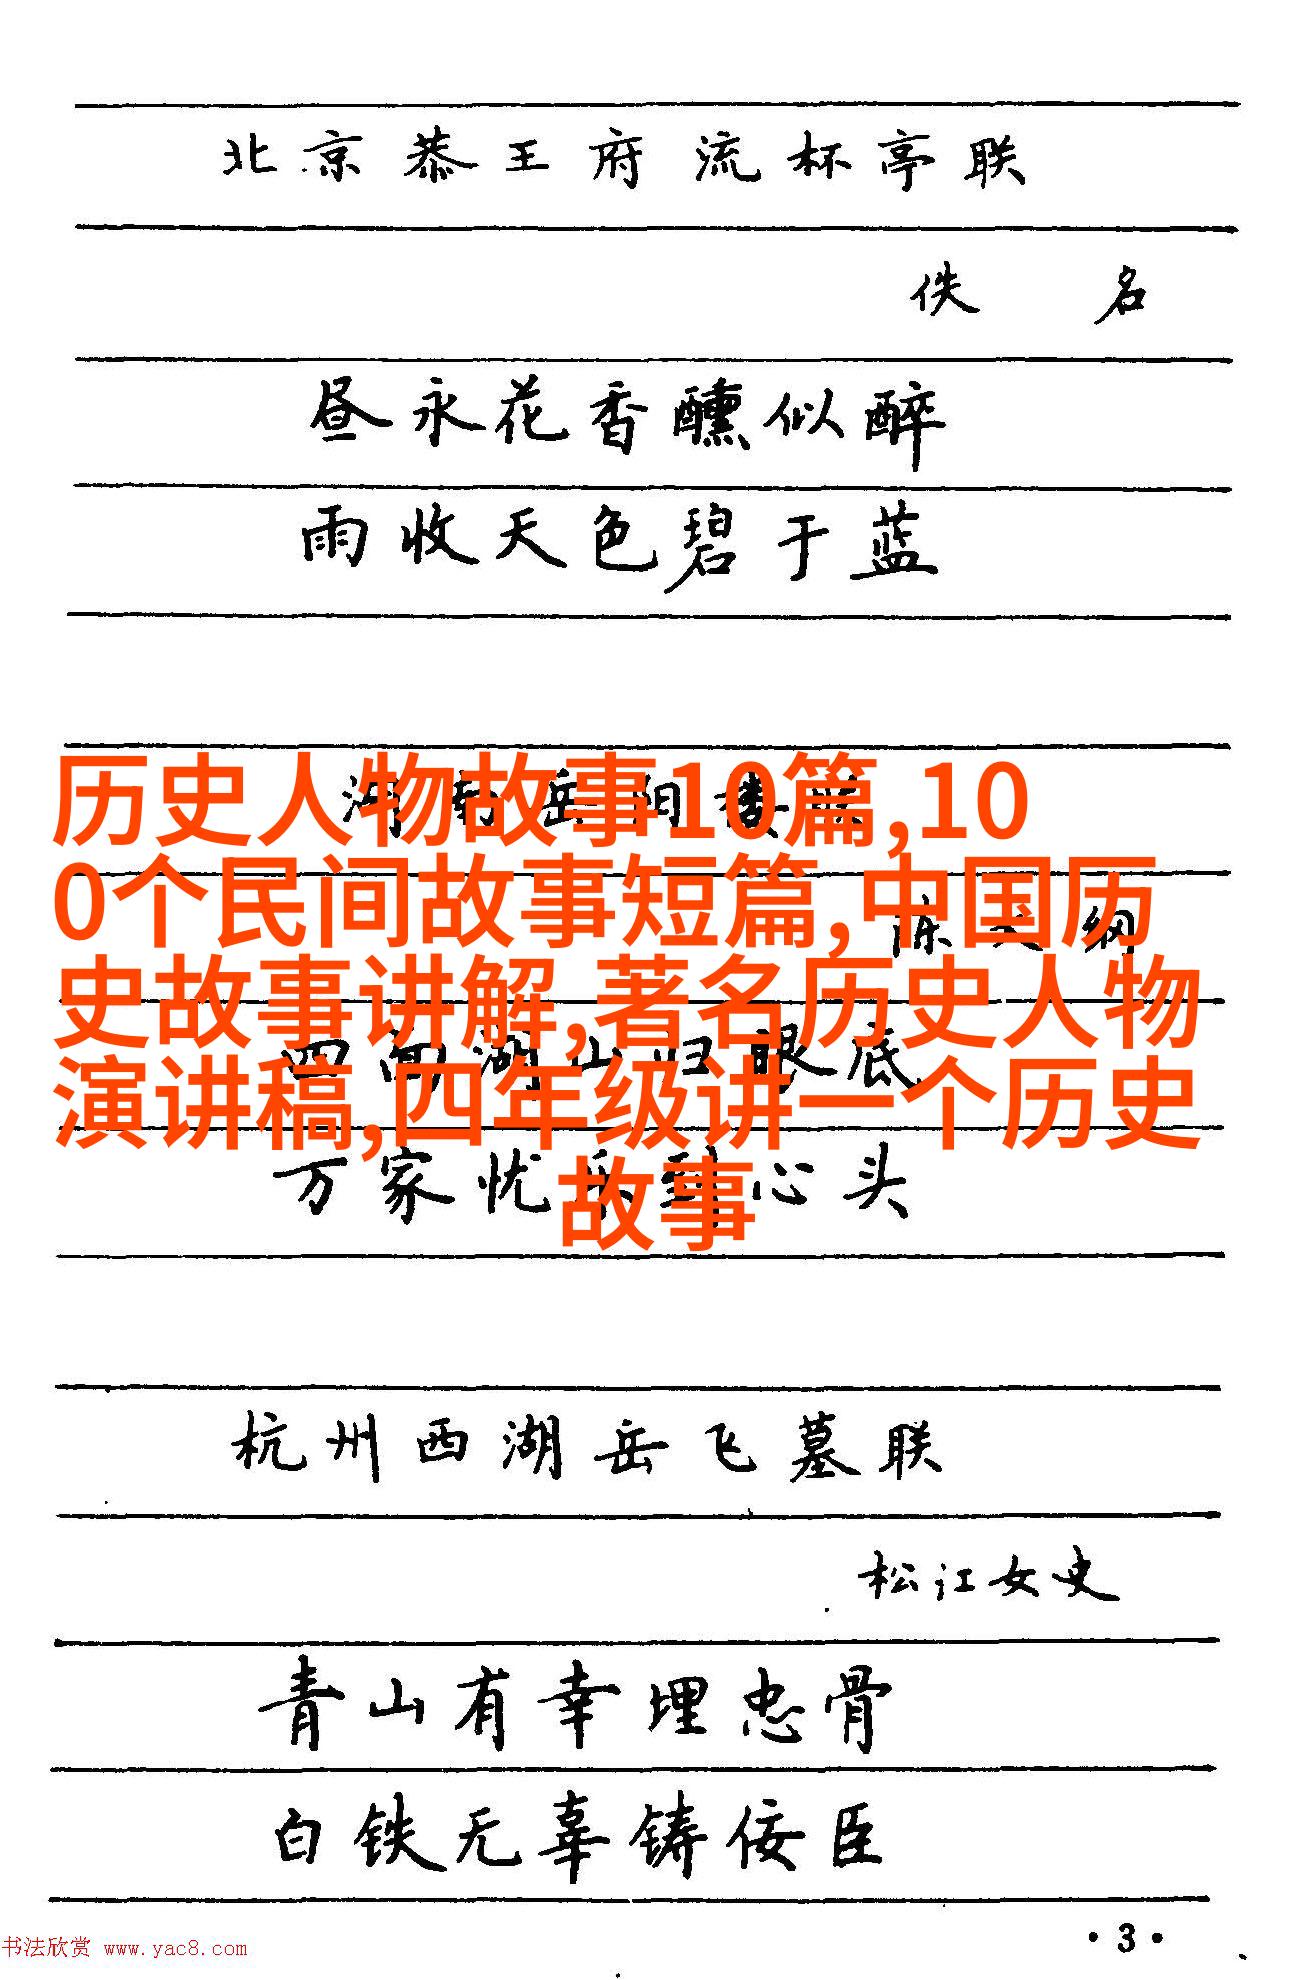 北京恭王府流杯亭联
佚名
昼永花香醺似醉
雨收天色碧于蓝
历史人物故事10篇,10
0个民间故事短篇,中国历
史故事讲解,著名历史人物
演讲稿,四年级讲一个历史
故事
四面湖山归眼底
万家忧乐到心头
杭州西湖岳飞墓联
松江女史
青山有幸埋忠骨
白铁无辜铸佞臣
·3·
书法欣赏 www.yac8.com